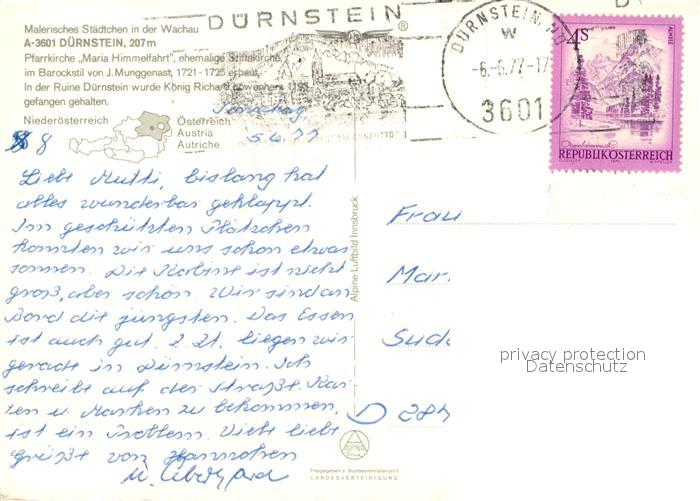 Malerisches Städtchen in der Wachau
A-3601 DÜRNSTEIN, 207 m
Pfarrkirche „Maria Himmelfahrt", ehemalige Stiftskirche,
im Barockstil von J. Munggenast, 1721 - 1725 erbaut.
In der Ruine Dürnstein wurde König Richard Löwenherz 1193
gefangen gehalten.
Niederösterreich
Österreich
Austria
Autriche
DÜRNSTEIN
®
DÜRNSTEIN
W
-6.-6.77-17
3601
4S
REPUBLIK ÖSTERREICH
Sonntag
5.6.77
8
Liebe Mutti, bislang hat
alles wunderbar geklappt.
Im geschützten Plätzchen
konnten wir uns schon etwas
sonnen. Die Kabine ist nicht
groß, aber schön. Wir sind an
Bord die jüngsten. Das Essen
ist auch gut. Z. Zt. liegen wir
gerade in Dürnstein. Ich
schreibe auf der Straße. Kar-
ten u. Marken zu bekommen,
ist ein Problem. Viele liebe
Grüße von Hannchen
u.
Alpine Luftbild Innsbruck
Frau
Mar
Sude
D 284
privacy protection
Datenschutz
ALPINE
Freigegeben v. Bundesministerium f.
LANDESVERTEIDIGUNG